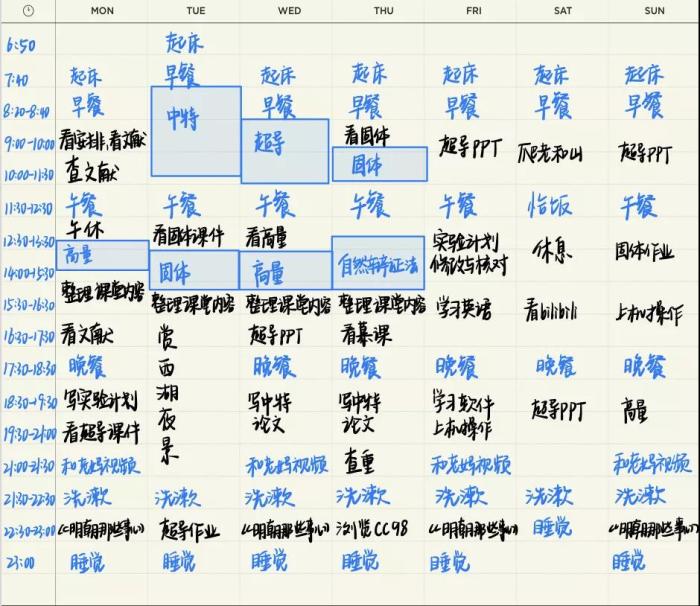 MON TUE WED THU FRI SAT SUN
6:50 起床
7:40 起床 早餐 起床 起床 起床 起床 起床
8:20-8:40 早餐 中特 早餐 早餐 早餐 早餐 早餐
9:00-10:00 看安排,看文献 超导 看固体 超导PPT 爬老和山 超导PPT
10:00-11:30 查文献 固体
11:30-12:30 午餐 午餐 午餐 午餐 午餐 恰饭 午餐
12:30-13:30 午休 看固体课件 看高量 实验计划 休息 固体作业
14:00-15:30 高量 固体 高量 自然辩证法 修改与核对
15:30-16:30 整理课堂内容 整理课堂内容 整理课堂内容 整理课堂内容 学习英语 看bilibili 上机操作
16:30-17:30 看文献 赏西湖夜景 超导PPT 看慕课
17:30-18:30 晚餐 晚餐 晚餐 晚餐 晚餐 晚餐
18:30-19:30 写实验计划 写中特 写中特 学习软件 超导PPT 高量
19:30-21:00 看超导课件 论文 论文 上机操作
21:00-21:30 和老妈视频 和老妈视频 查重 和老妈视频 和老妈视频
21:30-22:30 洗漱 洗漱 洗漱 洗漱 洗漱 洗漱 洗漱
22:30-23:00 《明朝那些事儿》 超导作业 《明朝那些事儿》 浏览CC98 《明朝那些事儿》 睡觉 《明朝那些事儿》
23:00 睡觉 睡觉 睡觉 睡觉 睡觉 睡觉